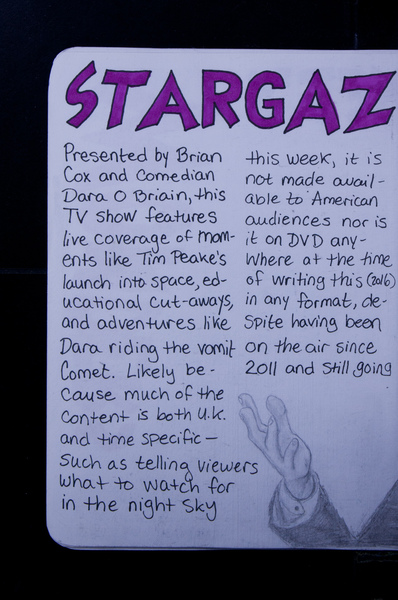 STARGAZ
Presented by Brian
Cox and Comedian
Dara O Briain, this
TV show features
live coverage of mom-
ents like Tim Peake's
launch into space, ed-
ucational cut-aways,
and adventures like
Dara riding the vomit
Comet. Likely be-
cause much of the
content is both U.K.
and time specific —
such as telling viewers
what to watch for
in the night sky
this week, it is
not made avail-
able to American
audiences nor is
it on DVD any-
where at the time
of writing this (2016)
in any format, de-
spite having been
on the air since
2011 and still going